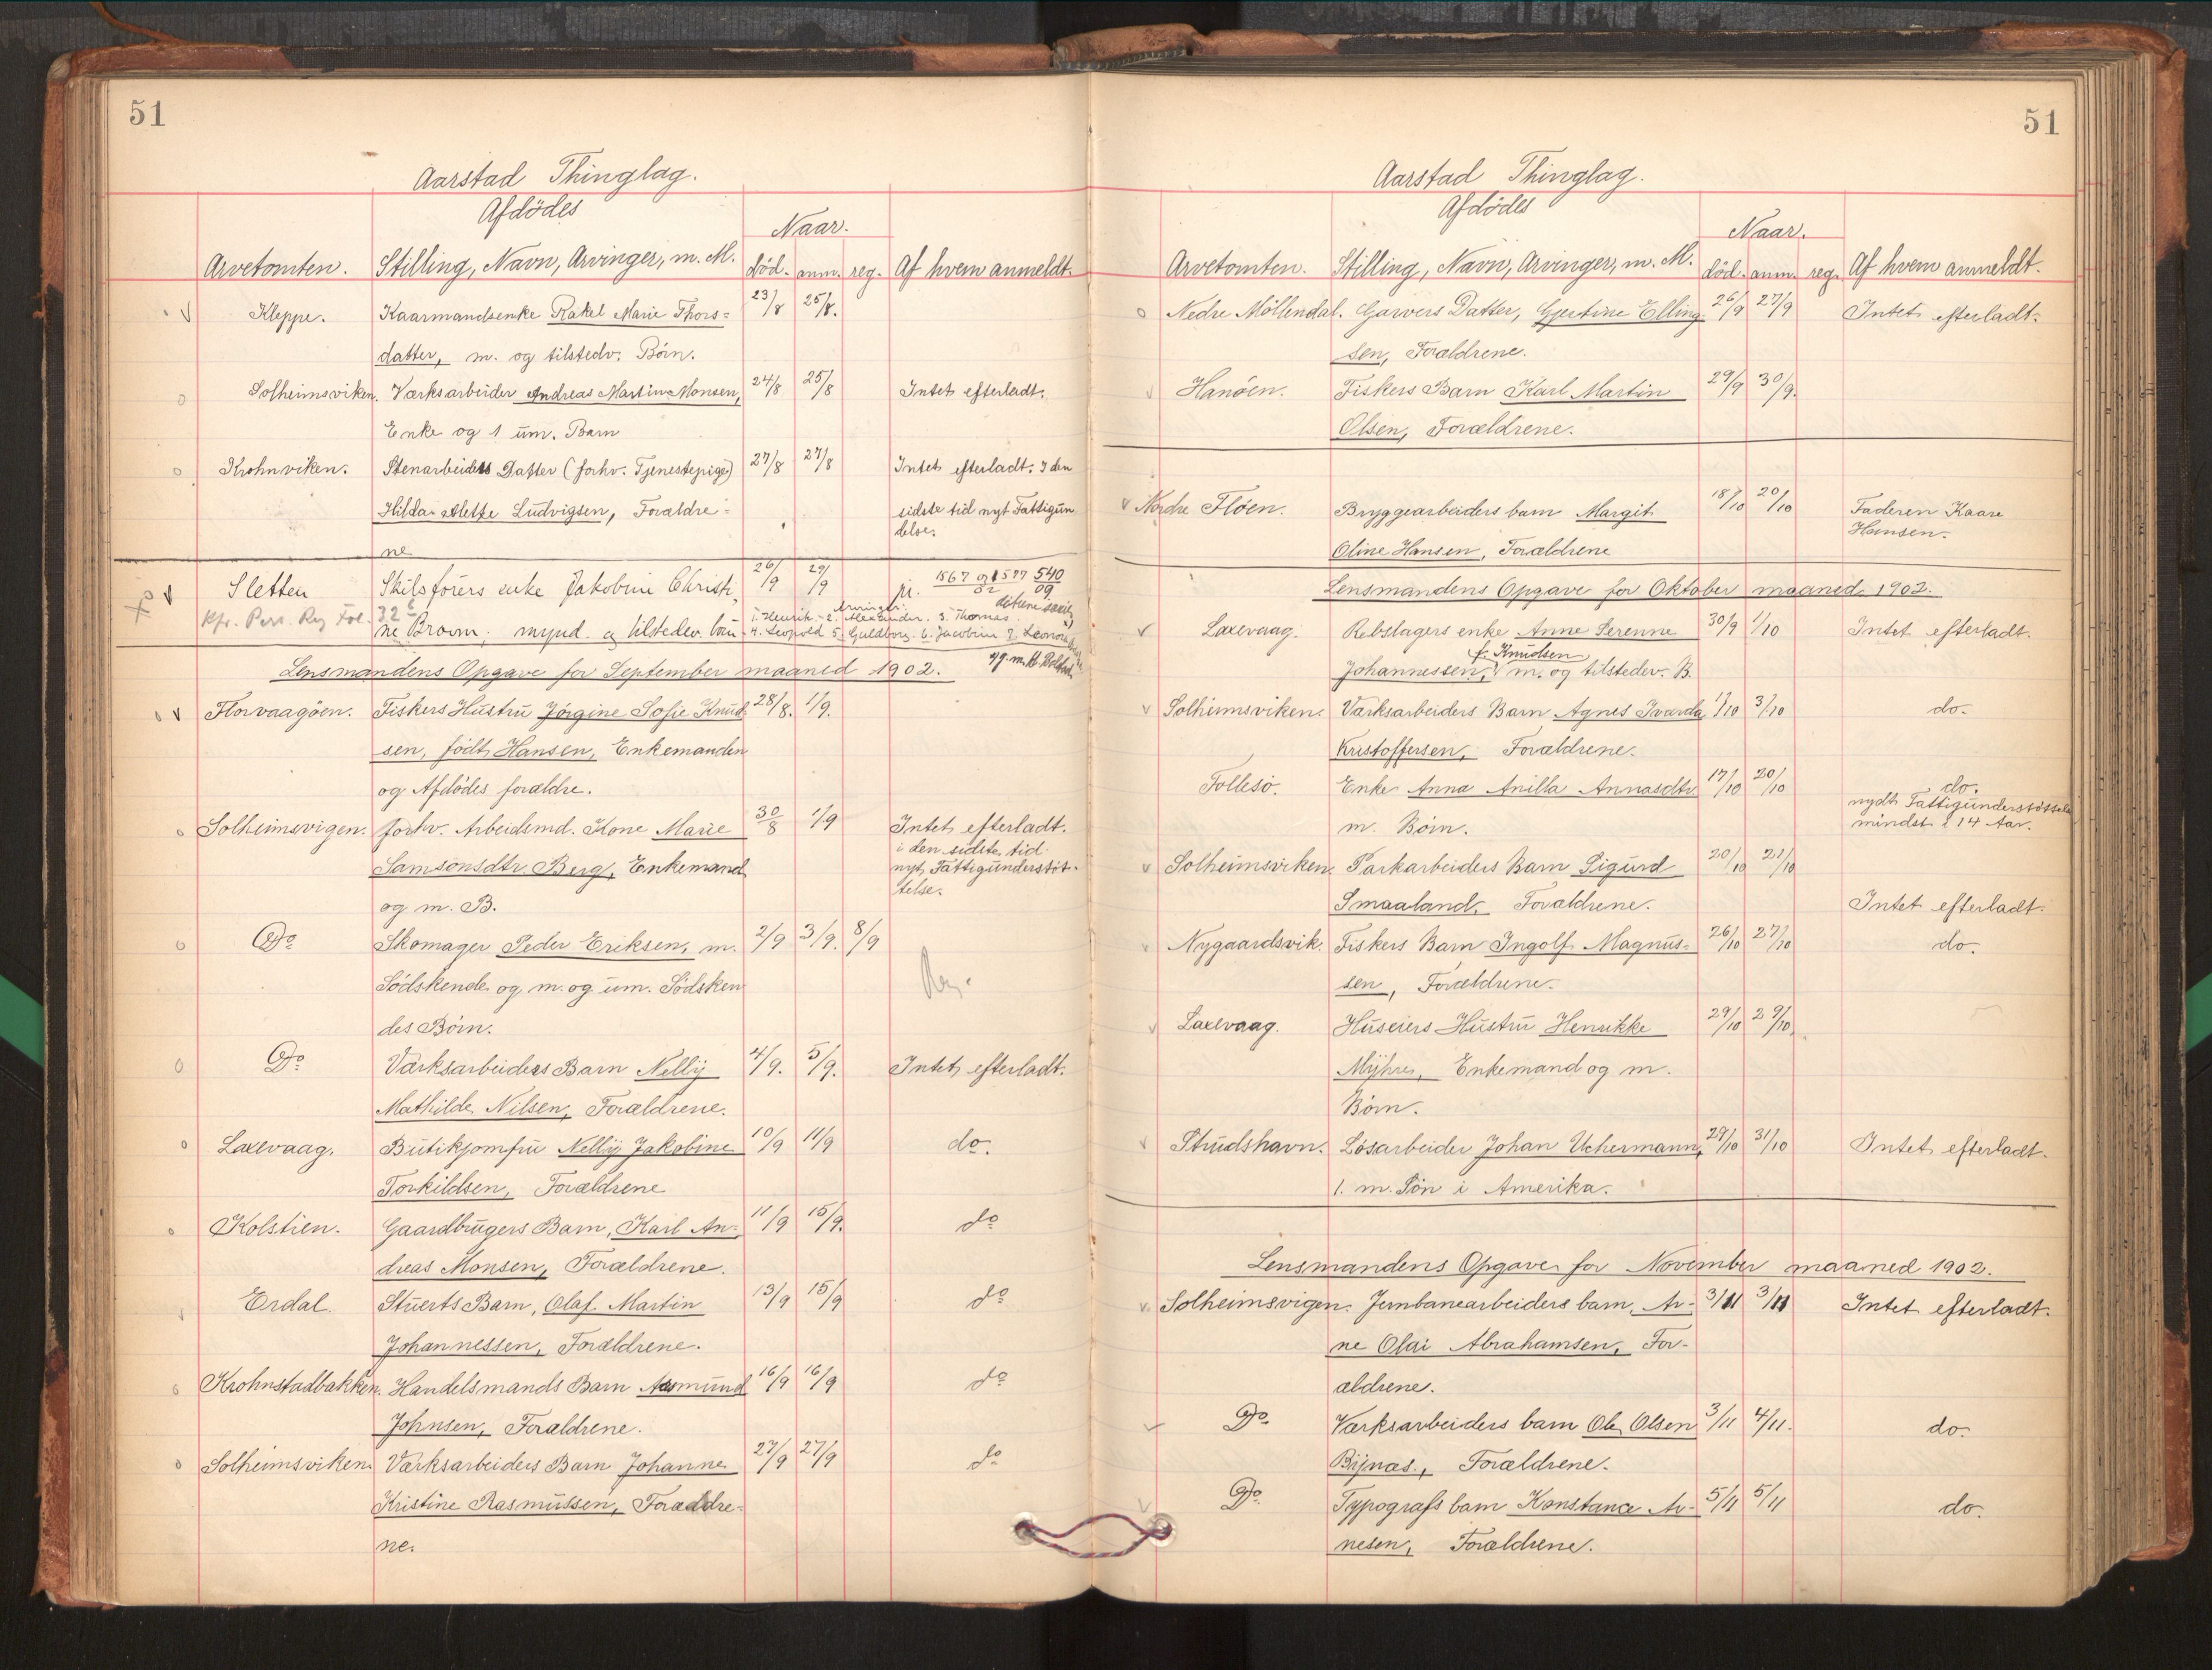 51
Aarstad Thinglag.
Afdödes
Naar.
Arvetomten. Stilling, Navn, Arvinger, m. M. död. anm. reg. Af hvem anmeldt.
Kleppe. Kaarmandsenke Rakel Marie Thors= 23/8 25/8.
datter, m. og tilstedv. Börn.
Solheimsviken. Værksarbeider Andreas Martin Monsen, 24/8 25/8 Intet efterladt.
Enke og 1 um. Barn
Krohnviken. Stenarbeiders Datter (forhv. Tjenestepige) 27/8 27/8 Intet efterladt. I den
Hilda Alette Ludvigsen, Forældre= sidste tid nyt Fattigun
ne delse.
Sletten Skibsförers enke Jakobine Christi, 26/9 29/9
Kfr. Part. Reg Fol. 32
ne Broum, mynd. og tilstedev. børn 1. Henrik 2. Alexander. 3. Thomas
4. Leopold 5. Guldborg. 6. Jacobine 7. Leonora
Lensmandens Opgave for September maaned 1902.
Florvaagöen. Fiskers Hustru Jörgine Sofie Knud- 28/8. 1/9.
sen, födt Hansen, Enkemanden
og Afdödes forældre.
Solheimsvigen. forhv. Arbeidsmd. Kone Marie 30/8 1/9 Intet efterladt.
i den sidste tid
Samsonsdtr. Berg, Enkemand nyt Fattigunderstöt-
telse.
og m. B.
Do Skomager Peder Eriksen, m. 2/9 3/9. 8/9
Södskende og m. og um. Södsken Reg.
des Börn.
Do Værksarbeiders Barn Nelly 4/9. 5/9. Intet efterladt.
Mathilde Nilsen, Forældrene.
Laxevaag. Butikjomfru Nelly Jakobine 10/9 11/9 do.
Torkildsen, Forældrene
Kolstien. Gaardbrugers Barn, Karl An- 11/9 15/9. do
dreas Monsen, Forældrene.
Erdal. Stuerts Barn, Olaf Martin 13/9 15/9 do
Johannessen, Forældrene.
Krohnstadbakken. Handelsmands Barn Aasmund 16/9 16/9 do
Johnsen, Forældrene.
Solheimsviken Værksarbeiders Barn Johanne 27/9 27/9 do
Kristine Rasmussen, Forældre=
ne.
51
Aarstad Thinglag.
Afdödes
Naar.
Arvetomten. Stilling, Navn, Arvinger, m. M. död. anm. reg. Af hvem anmeldt.
Nedre Möllendal. Garvers Datter, Gjertine Elling 26/9 27/9 Intet efterladt.
sen, Forældrene.
Hanöen. Fiskers Barn Karl Martin 29/9 30/9.
Olsen, Forældrene.
Nordre Flöen. Bryggearbeiders barn Margit 18/10 20/10 Faderen Kaare
Hansen.
Oline Hansen, Forældrene
Lensmandens Opgave for Oktober maaned 1902.
Laxevaag. Rebslagers enke Anne Serenne 30/9 1/10 Intet efterladt.
f. Knudsen
Johannessen, m. og tilstedev. B.
Solheimsviken. Værksarbeiders Barn Agnes Ivarda 1/10 3/10 do.
Kristoffersen, Forældrene.
Follesö. Enke Anna Anilla Annasdtr 17/10 20/10 do.
nydt Fattigunderstöttelse
m. Börn. mindst i 14 Aar.
Solheimsviken. Parkarbeiders Barn Sigurd 20/10 22/10
Smaaland, Forældrene. Intet efterladt.
Nygaardsvik. Fiskers Barn Ingolf Magnus= 26/10 27/10 do.
sen, Forældrene.
Laxevaag. Huseiers Hustru Henrikke 29/10 29/10.
Myhre, Enkemand og m.
Börn.
Strudshavn. Lösarbeider Johan Uchermann, 29/10 31/10 Intet efterladt.
1. m. Sön i Amerika.
Lensmandens Opgave for November maaned 1902.
Solheimsvigen. Jernbanearbeiders barn, Ar- 3/11 3/11 Intet efterladt.
ne Olai Abrahamsen, For-
ældrene.
Do. Værksarbeiders barn Ole Olsen 3/11 4/11. do.
Bijnæs., Forældrene.
Do. Typografs barn Konstance Ar- 5/11 5/11 do.
nesen, Forældrene.